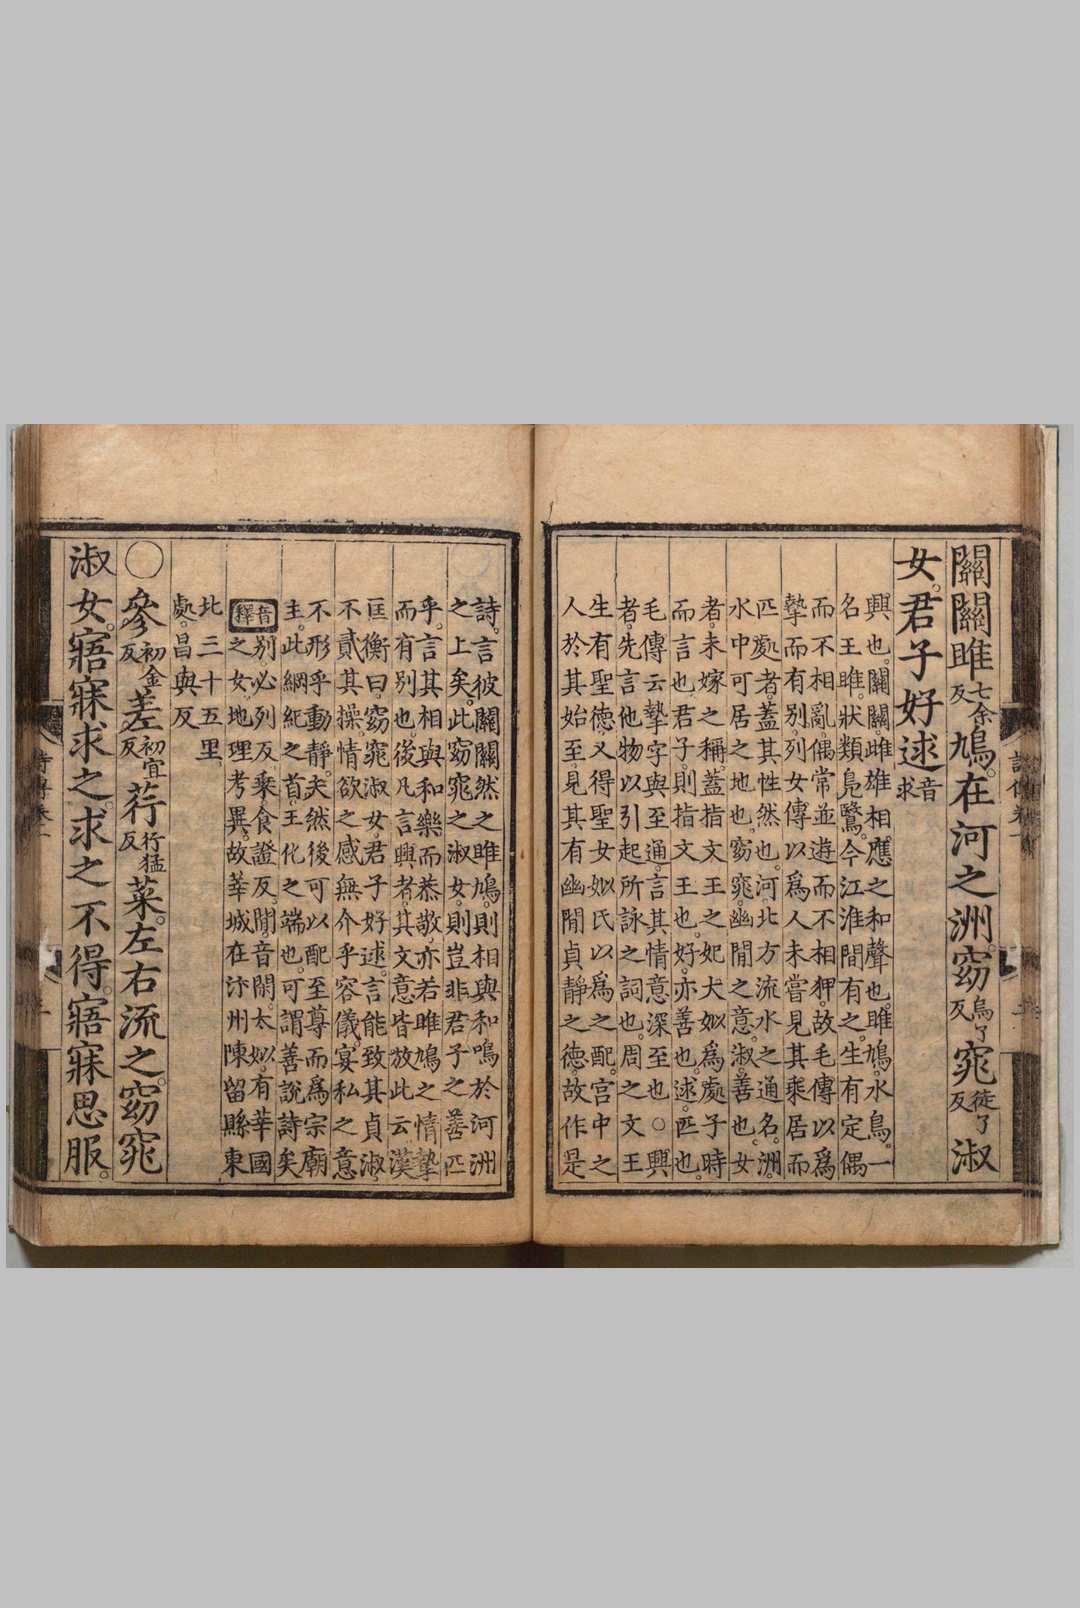 關關雎七余反鳩在河之洲窈烏了反窕徒了反淑
女君子好逑音求
興也關關雌雄相應之和聲也雎鳩水鳥一
名王雎狀類鳧鷖今江淮間有之生有定偶
而不相亂偶常並遊而不相狎故毛傳以爲
摯而有別列女傳以爲人未嘗見其乘居而
匹處者蓋其性然也河北方流水之通名洲
水中可居之地也窈窕幽閒之意淑善也女
者未嫁之稱蓋指文王之妃大姒爲處子時
而言也君子則指文王也好亦善也逑匹也
毛傳云摯字與至通言其情意深至也○興
者先言他物以引起所詠之詞也周之文王
生有聖德又得聖女姒氏以爲之配宮中之
人於其始至見其有幽閒貞靜之德故作是
詩言彼關關然之雎鳩則相與和鳴於河洲
之上矣此窈窕之淑女則豈非君子之善匹
乎言其相與和樂而恭敬亦若雎鳩之情摯
而有別也後凡言興者其文意皆放此云漢
匡衡曰窈窕淑女君子好逑言能致其貞淑
不貳其操情欲之感無介乎容儀宴私之意
不形乎動靜夫然後可以配至尊而爲宗廟
主此綱紀之首王化之端也可謂善說詩矣
音釋
別必列反乘食證反閒音閑太姒有莘國
之女地理考異故莘城在汴州陳留縣東
北三十五里
處昌與反
○參初金反差初宜反荇行猛反菜左右流之窈窕
淑女寤寐求之求之不得寤寐思服